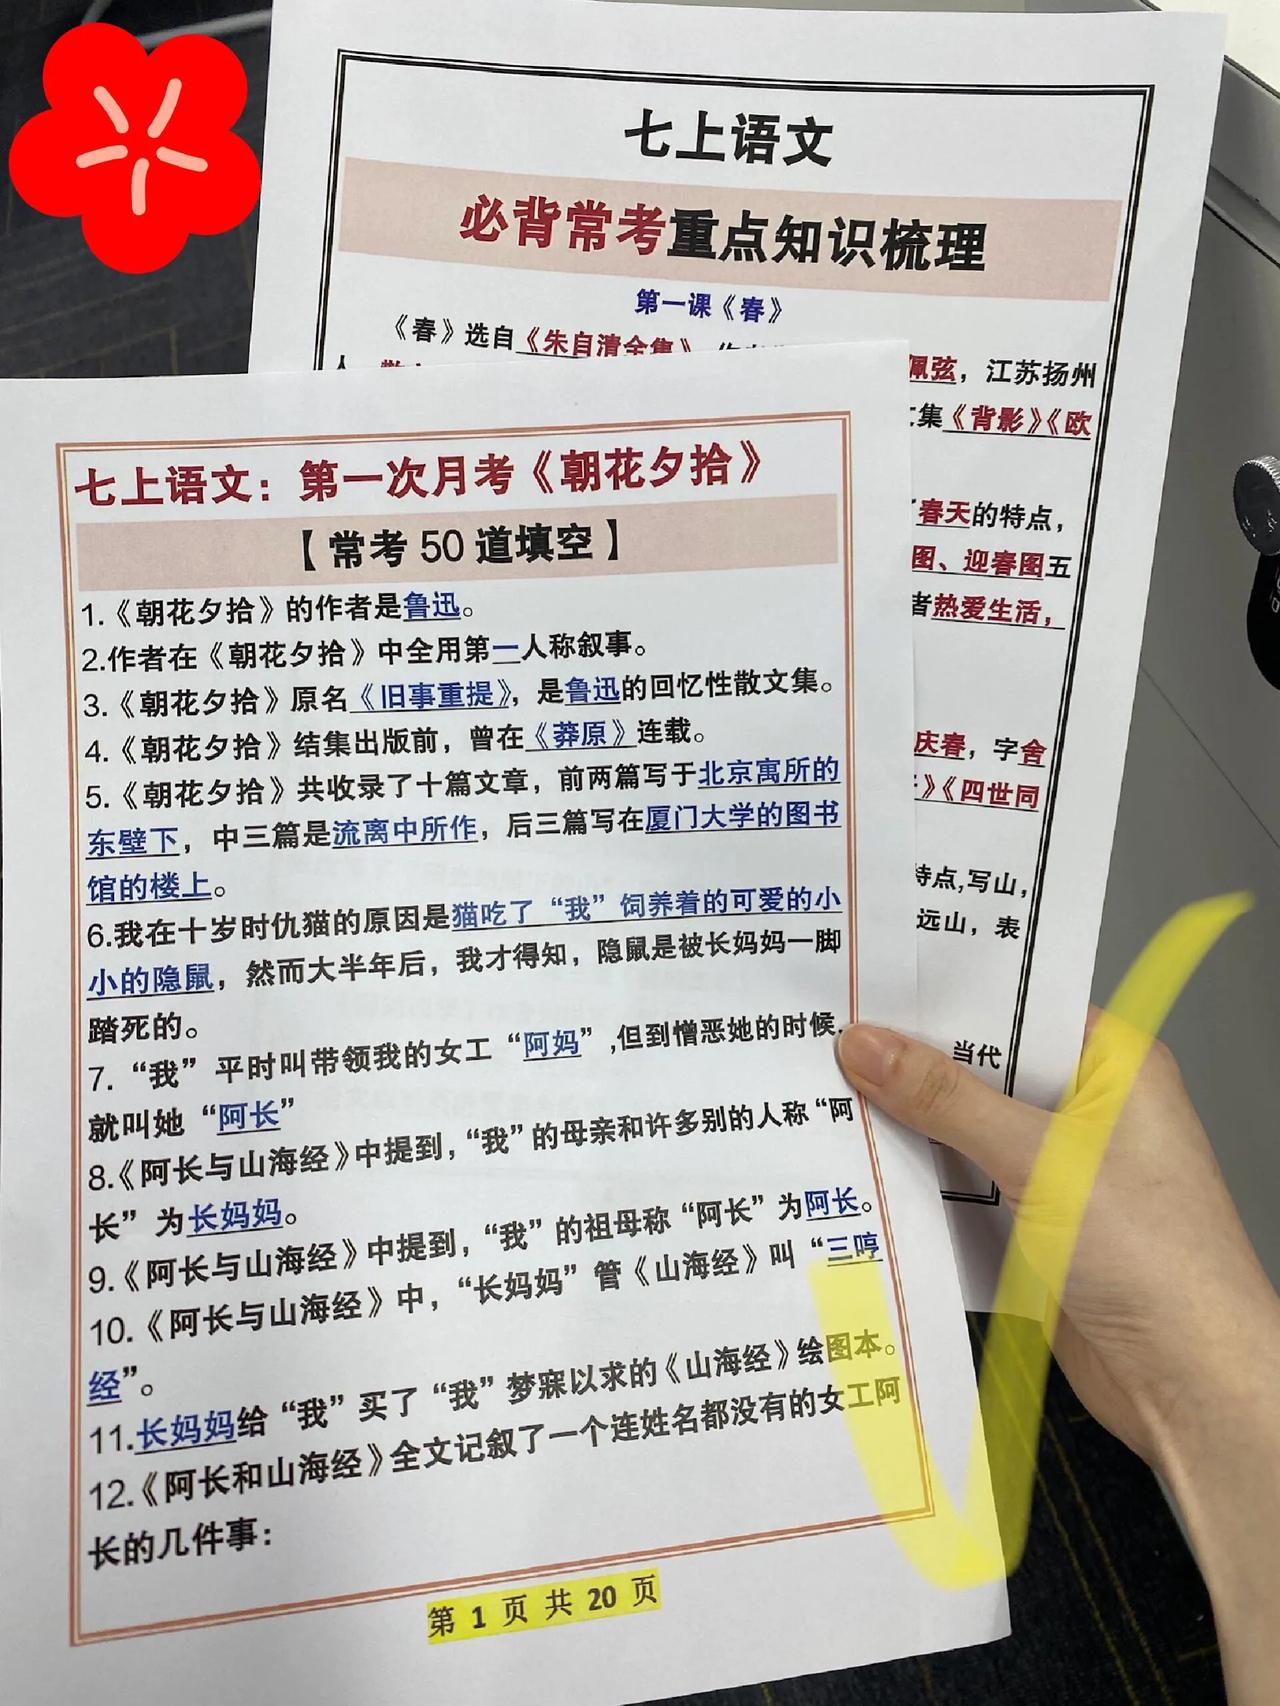 七上语文
必背常考重点知识梳理
第一课《春》
《春》选自《朱自清全集》
人
佩弦，江苏扬州
集《背影》《欧
春天的特点，
图、迎春图五
者热爱生活，
庆春，字舍
》《四世同
特点,写山，
远山，表
当代
七上语文：第一次月考《朝花夕拾》
【常考50道填空】
1.《朝花夕拾》的作者是鲁迅。
2.作者在《朝花夕拾》中全用第一人称叙事。
3.《朝花夕拾》原名《旧事重提》，是鲁迅的回忆性散文集。
4.《朝花夕拾》结集出版前，曾在《莽原》连载。
5.《朝花夕拾》共收录了十篇文章，前两篇写于北京寓所的
东壁下，中三篇是流离中所作，后三篇写在厦门大学的图书
馆的楼上。
6.我在十岁时仇猫的原因是猫吃了“我”饲养着的可爱的小
小的隐鼠，然而大半年后，我才得知，隐鼠是被长妈妈一脚
踏死的。
7.“我”平时叫带领我的女工“阿妈”,但到憎恶她的时候，
就叫她“阿长”
8.《阿长与山海经》中提到，“我”的母亲和许多别的人称“阿
长”为长妈妈。
9.《阿长与山海经》中提到，“我”的祖母称“阿长”为阿长。
10.《阿长与山海经》中，“长妈妈”管《山海经》叫“三哼
经”。
11.长妈妈给“我”买了“我”梦寐以求的《山海经》绘图本。
12.《阿长和山海经》全文记叙了一个连姓名都没有的女工阿
长的几件事：
第 1 页 共 20 页